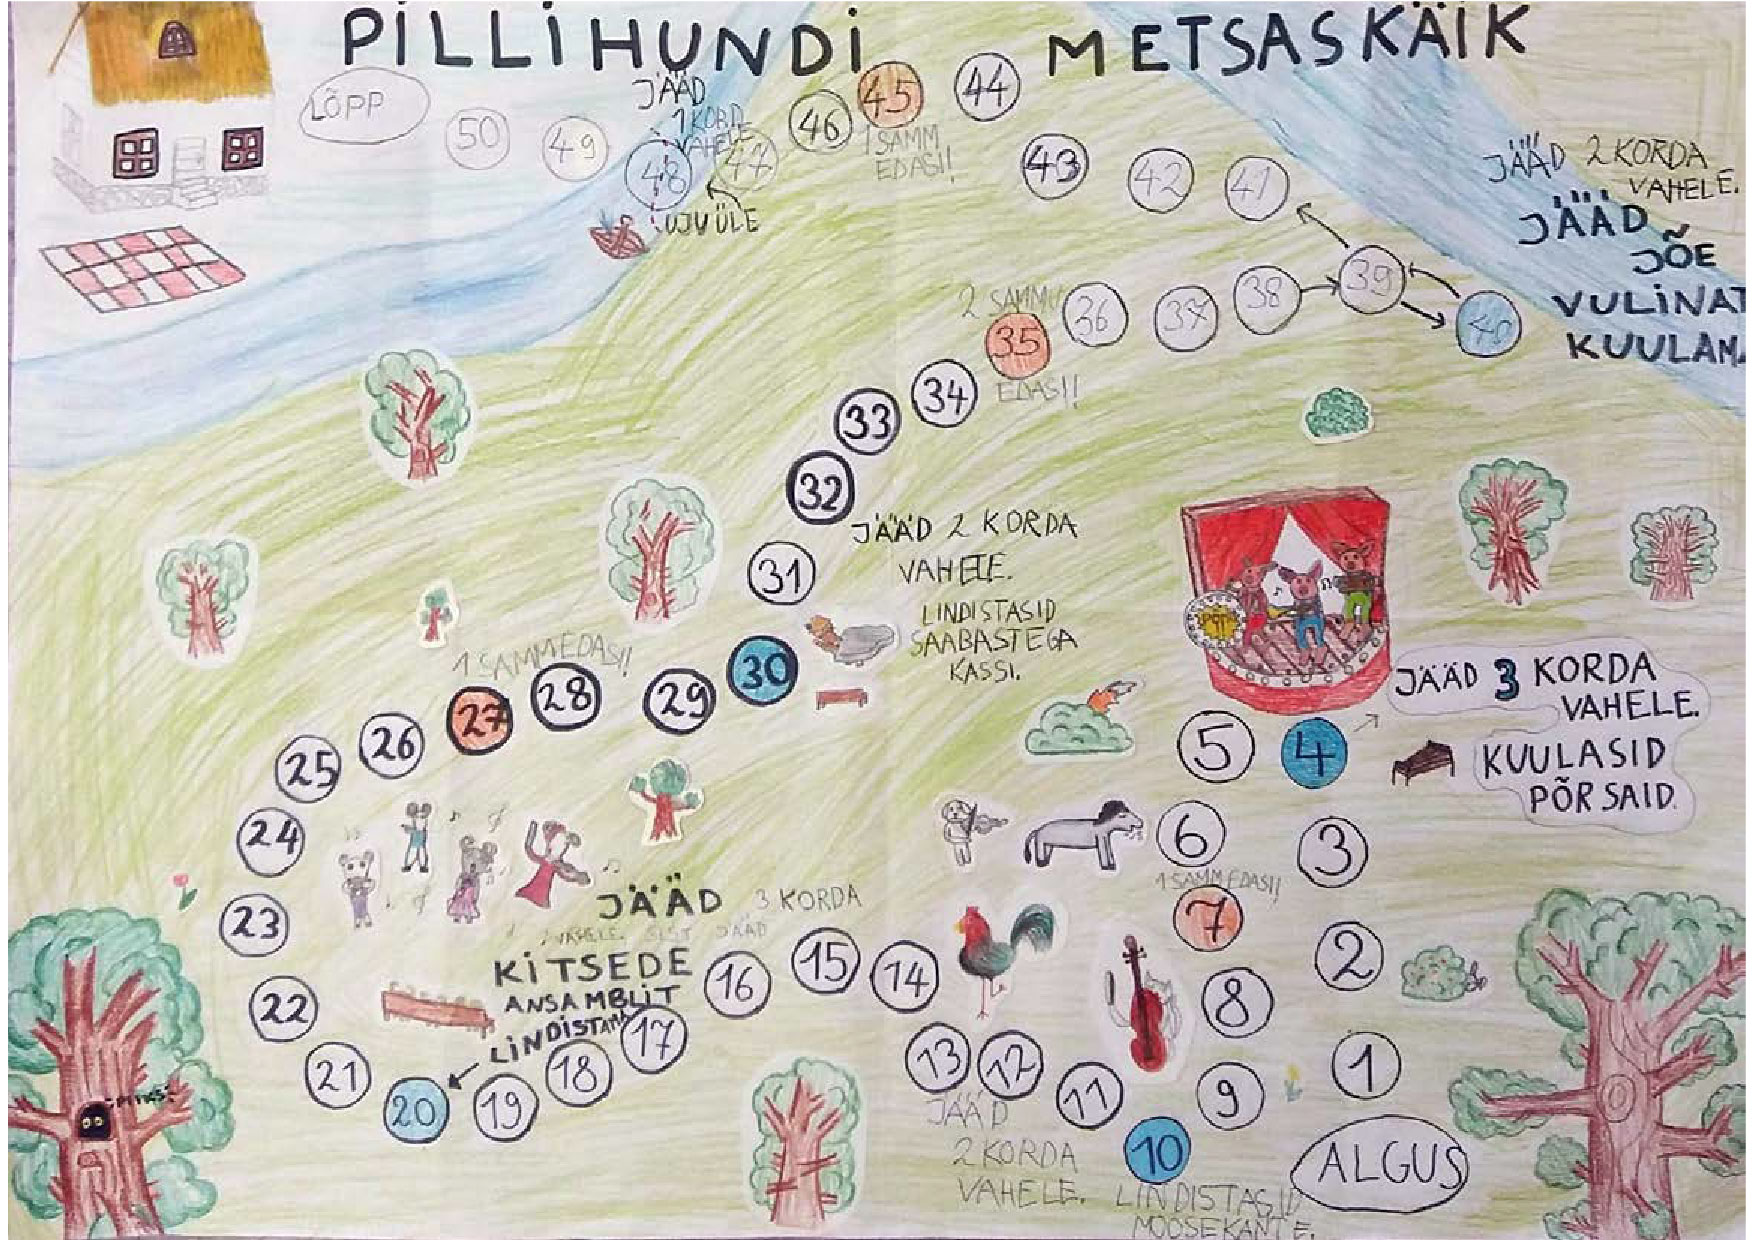 PILLIHUNDI METSASKÄIK
LÕPP
50
49
48
47
46
45
44
JÄÄD
1 KORD
VAHELE
UJU ÜLE
1 SAMM
EDASI!!
43
42
41
39
40
38
37
36
JÄÄD 2 KORDA
VAHELE.
JÄÄD
JÕE
VULINAT
KUULAMA
2 SAMMU
35
EDASI!!
34
33
32
31
JÄÄD 2 KORDA
VAHELE.
LINDISTASID
SAABASTEGA
KASSI.
30
29
28
1 SAMM EDASI!!
27
26
25
24
23
22
21
20
19
18
17
16
15
14
13
12
11
10
9
8
7
6
5
4
3
2
1
JÄÄD 3 KORDA
VAHELE.
KUULASID
PÕRSAID.
1 SAMM EDASI!
JÄÄD 3 KORDA
VAHELE. SEST JÄÄD
KITSEDE
ANSAMBLIT
LINDISTAMA
JÄÄD
2 KORDA
VAHELE.
LINDISTASID
MOOSEKANTE.
ALGUS